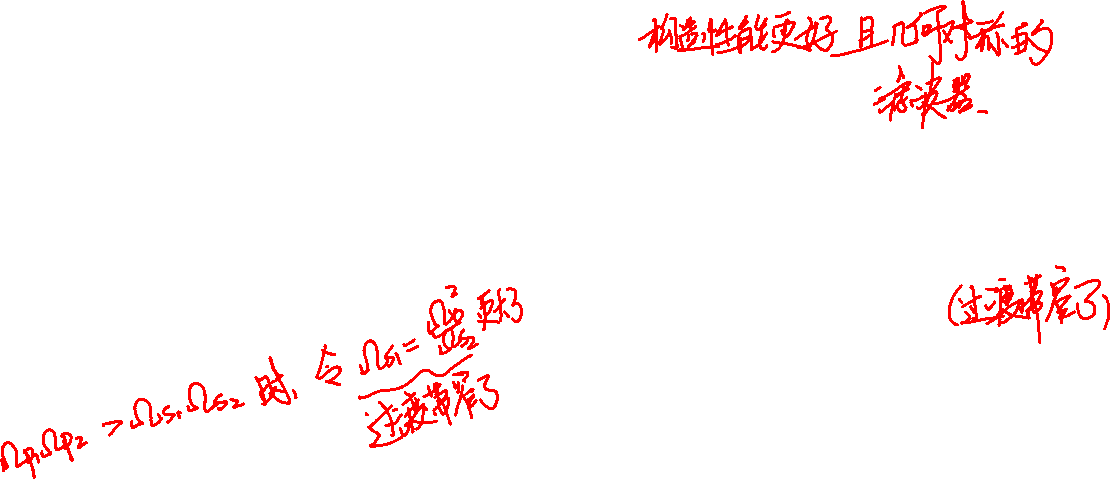 构造性能更好且几何对称的
滤波器
(过渡带窄了)
Ωp₁Ωp₂ > Ωs₁Ωs₂ 时, 令 Ωs₁ = Ω₀²/Ωs₂ 更好
过渡带窄了